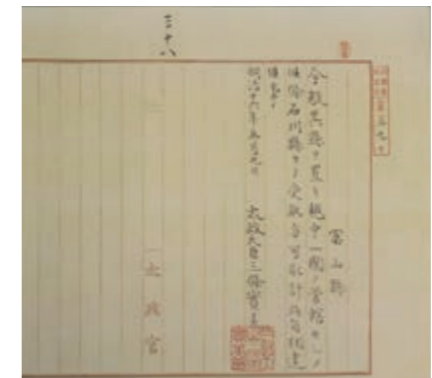 三十八
富山縣
今般其縣ヲ置キ越中一國ヲ管轄セシメ
候條石川縣ヨリ受取方可取計此旨相達
候事
明治十六年五月九日
太政大臣三條實美
太政官